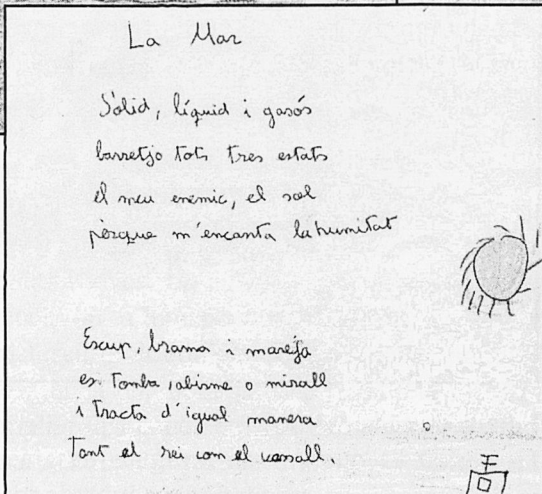 La Mar
Sòlid, líquid i gasós
barretjo tots tres estats
el meu enemic, el sol
pèrque m'encanta la humitat
Escup, brama i mareja
es tomba, abisme o mirall
i tracta d'igual manera
Tant el rei com el vassall.